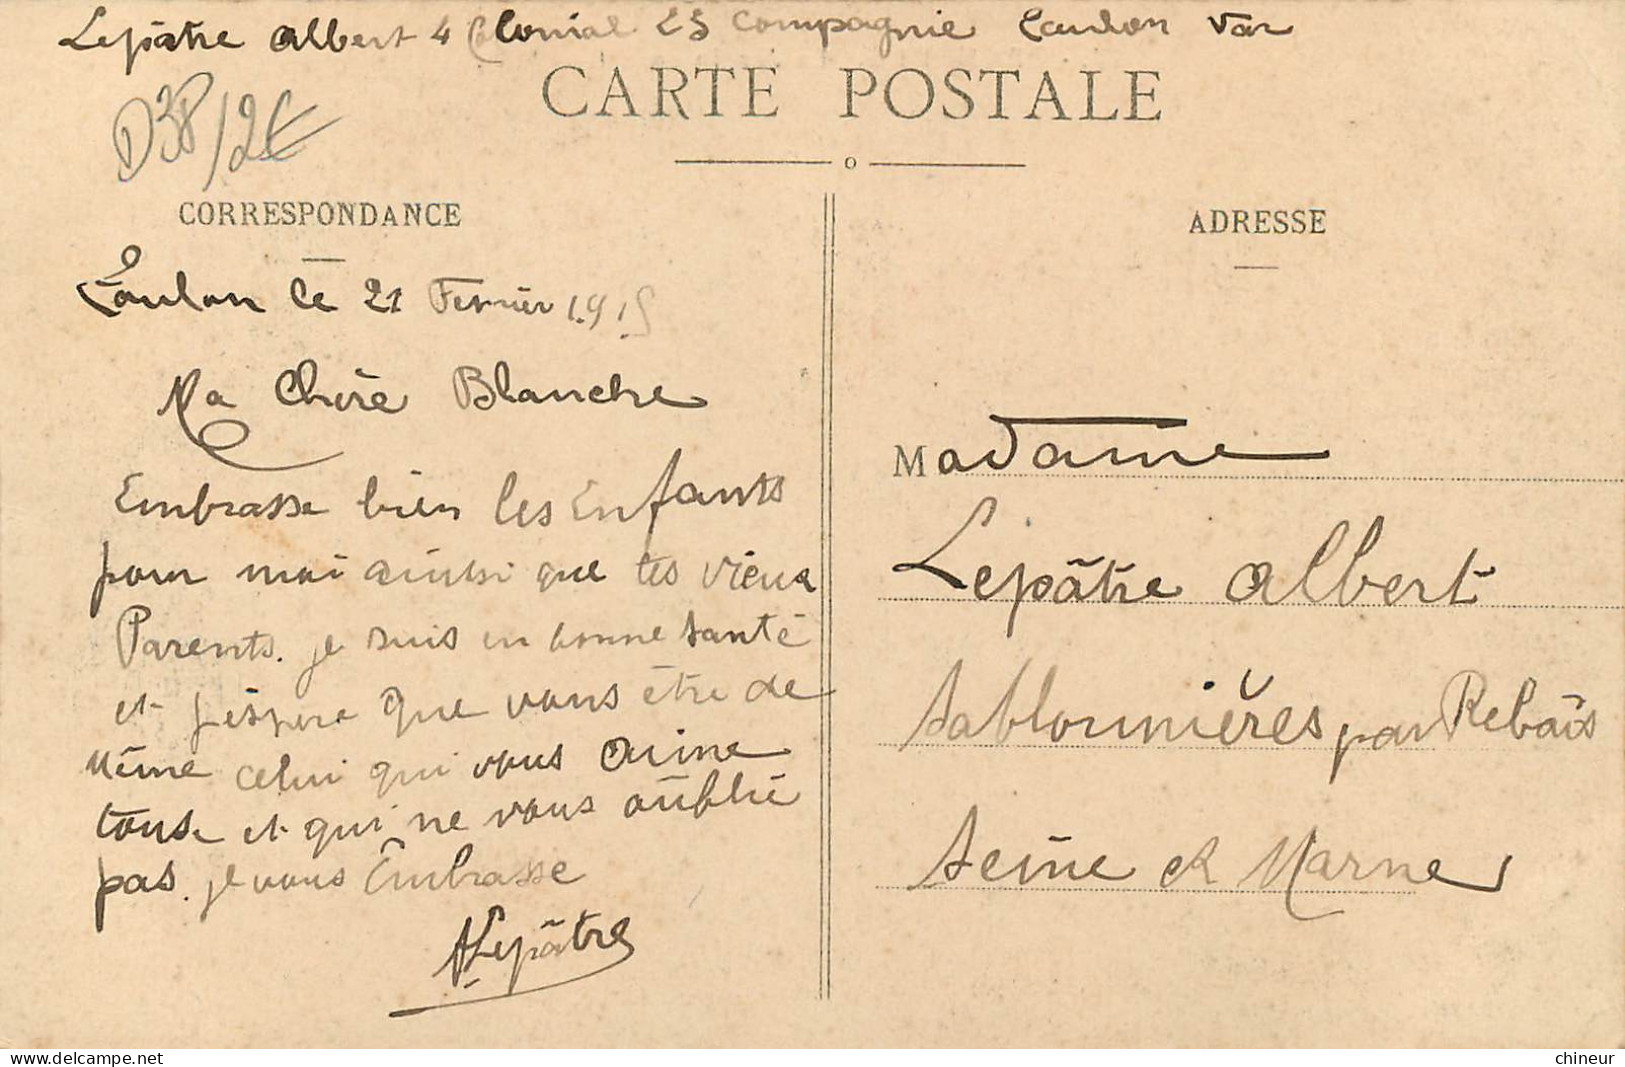 Lepâtre Albert 4 Colonial 25 Compagnie Toulon Var
CARTE POSTALE
D38/2€
CORRESPONDANCE
Toulon le 21 Fevrier 1915
Ma Chère Blanche
Embrasse bien les Enfants
pour moi ainsi que tes vieux
Parents. je suis en bonne santé
et j'éspere que vous être de
même celui qui vous aime
touse et qui ne vous oublie
pas. je vous Embrasse
A Lepâtre
ADRESSE
Madame
Lepâtre Albert
Sablonnières par Rebais
Seine et Marne
delcampe.net
chineur